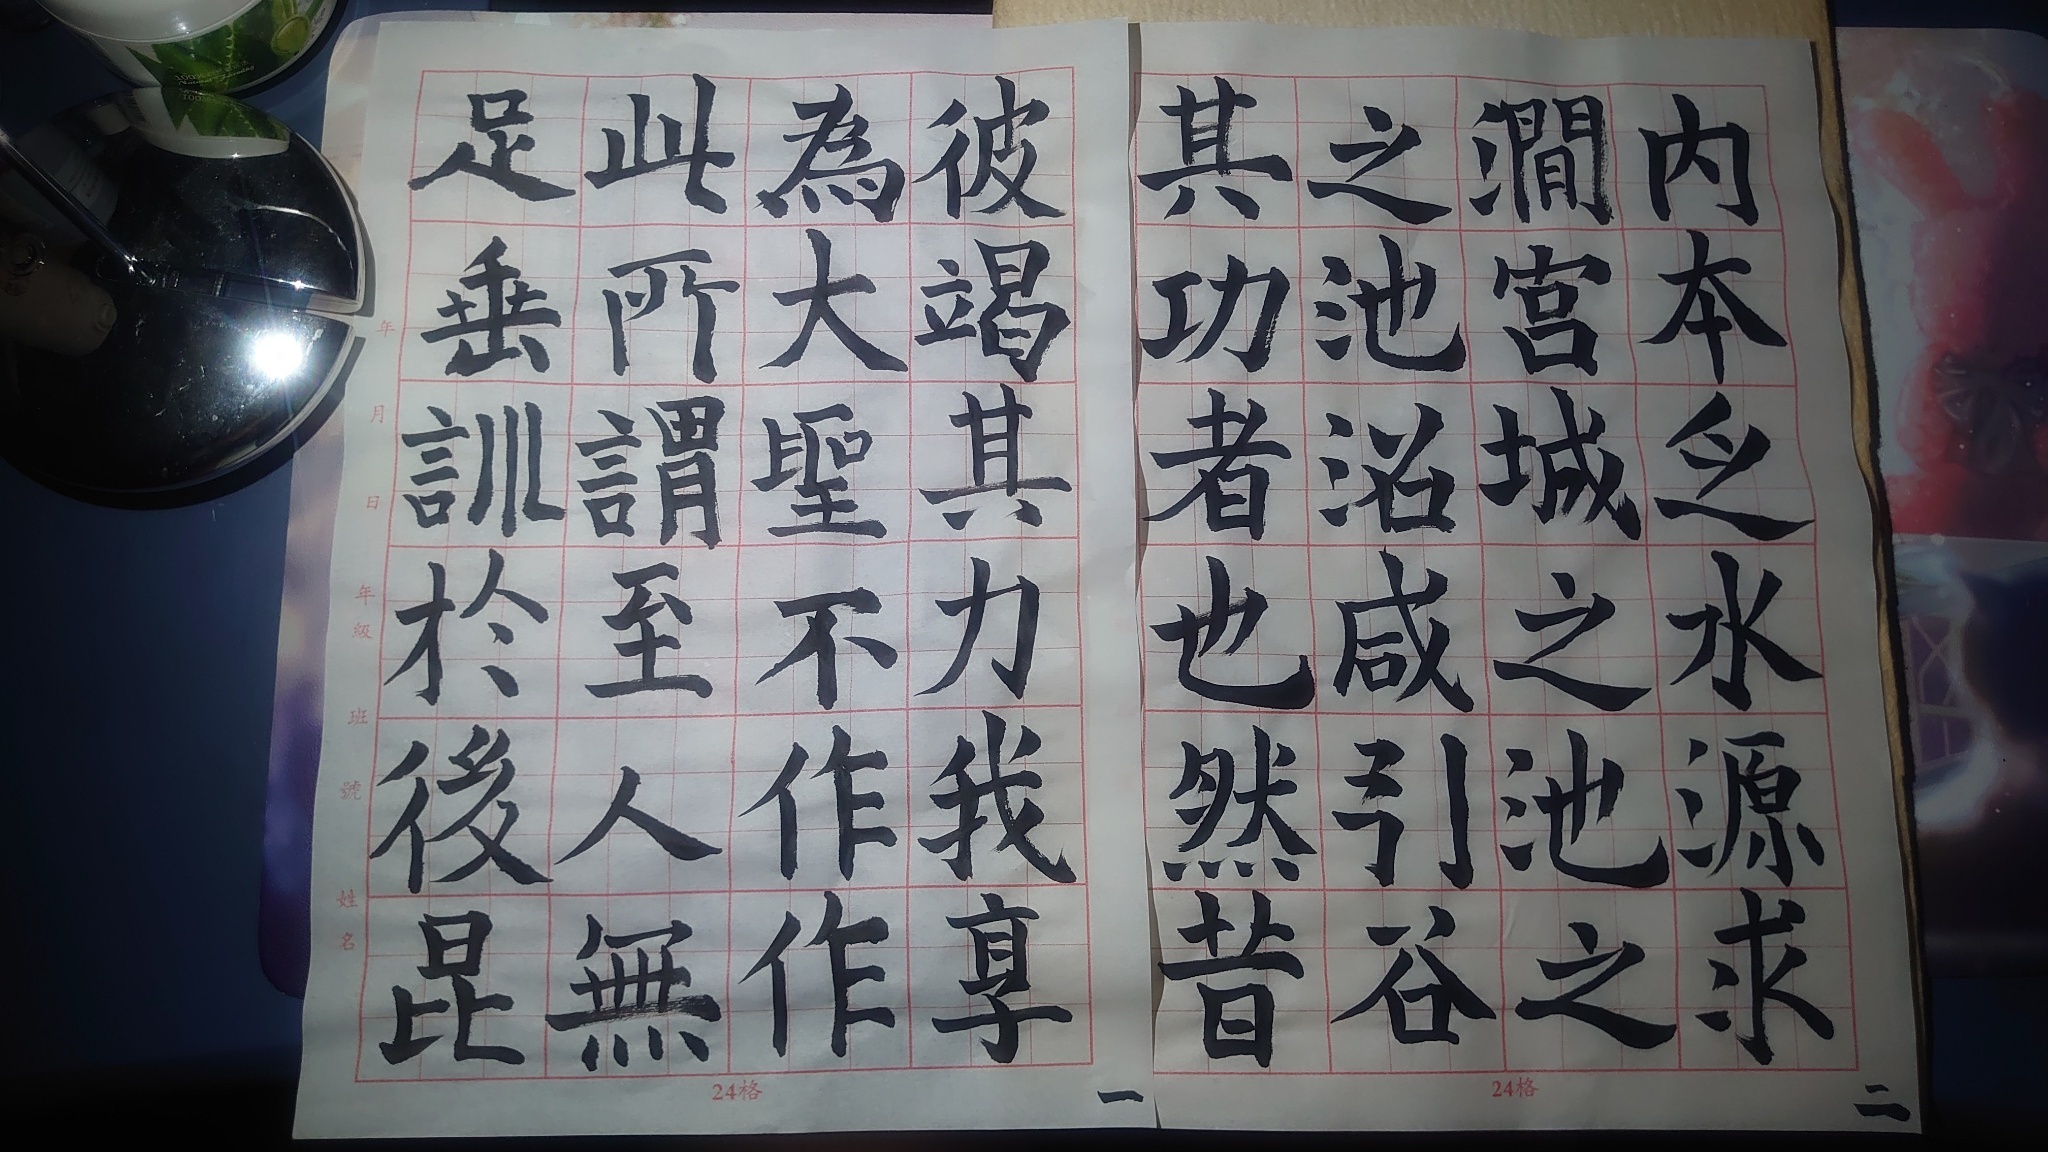 足垂訓於後昆
此所謂至人無
為大聖不作作
彼竭其力我享
其功者也然昔
之池沼咸引谷
澗宮城之池之
内本乏水源求
年 月 日
年級 班 號
姓名
24格
一
24格
二